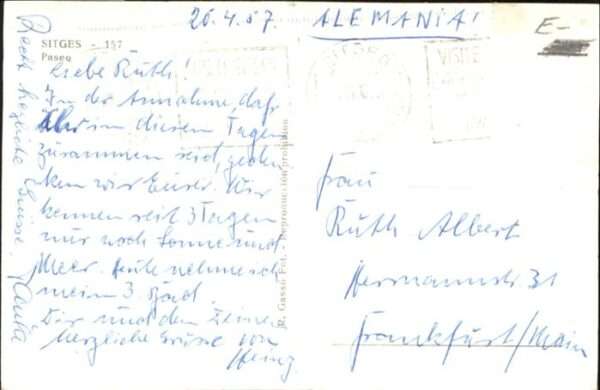 26.4.57.
ALEMANIA!
E-
SITGES - 157
Paseo
Liebe Ruth!
In der Annahme, daß
Ihr in diesen Tagen
zusammen seid, geden
ken wir Euer. Wir
kennen seit 3 Tagen
nur noch Sonne und
Meer. Heute nehme ich
mein 3. Bad.
Dir und den Deinen
herzliche Grüsse von
Heinz
Recht herzliche Grüsse
R. Gassó Fot. - Reproducción prohibida
VISITE
Frau
Ruth Albert
Hermannstr. 31
Frankfurt/Main